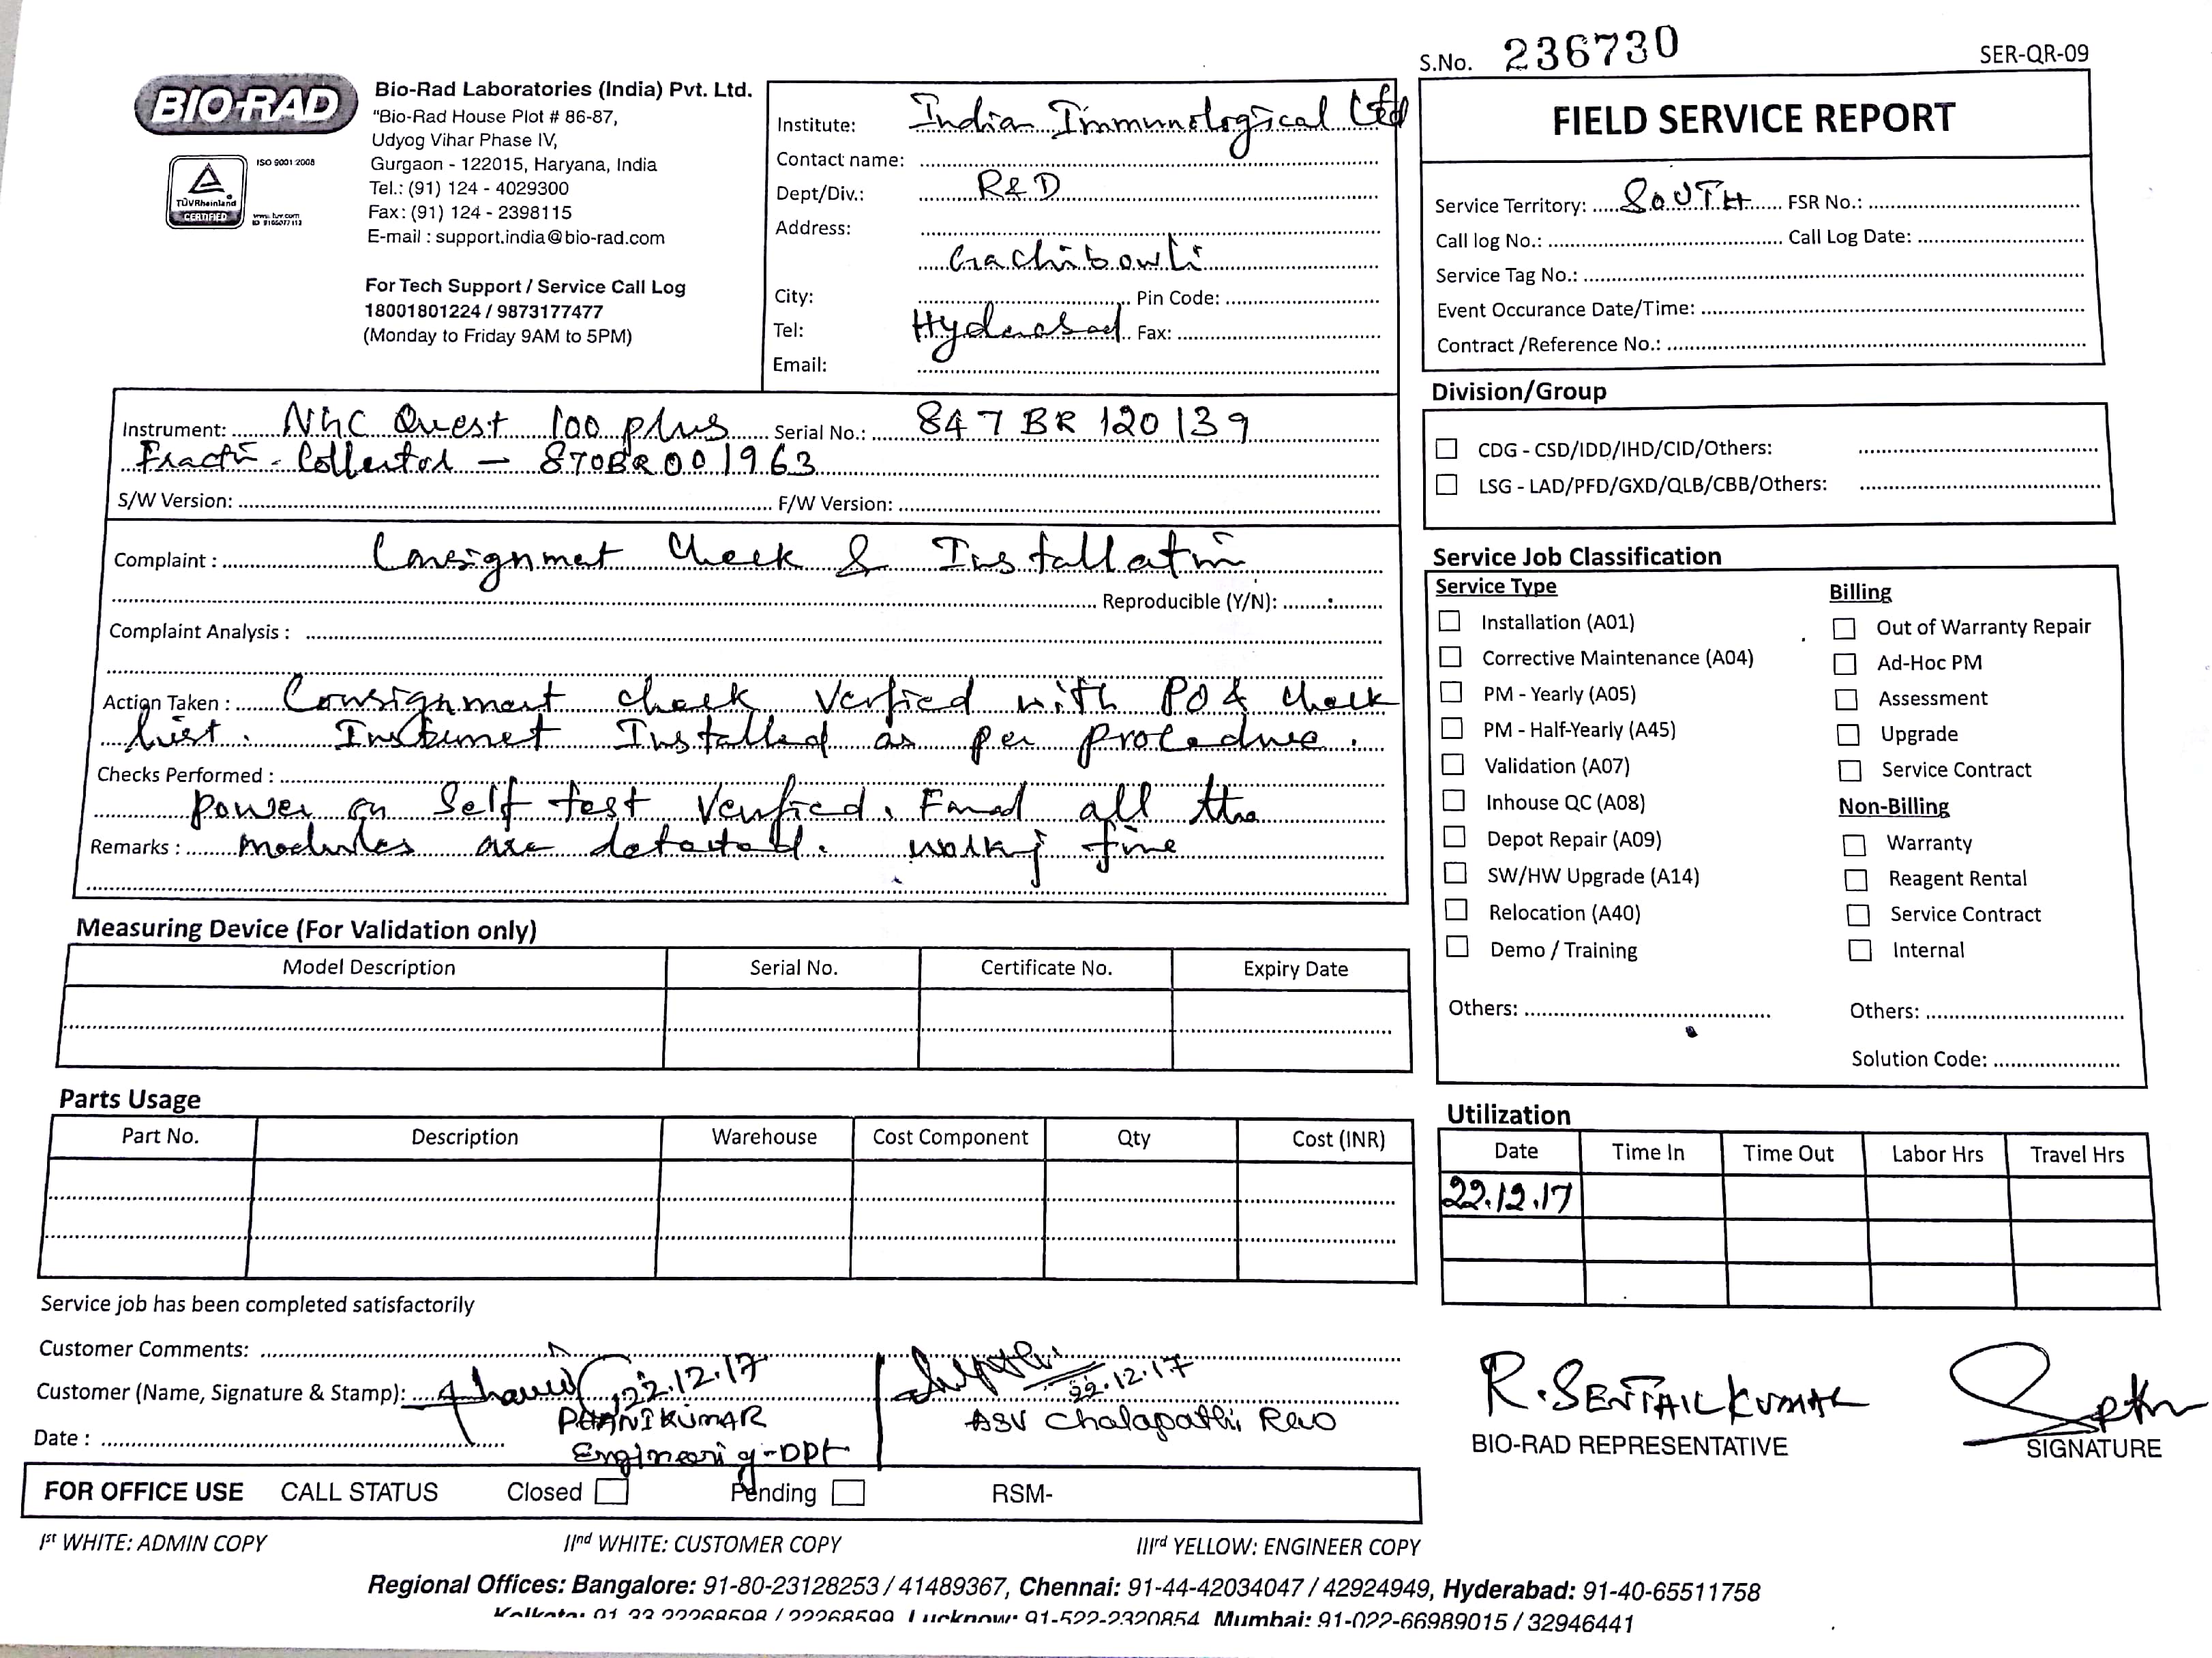 S.No. 236730
SER-QR-09
BIO-RAD
ISO 9001:2008
TÜVRheinland
CERTIFIED
www.tuv.com
Bio-Rad Laboratories (India) Pvt. Ltd.
"Bio-Rad House Plot # 86-87,
Udyog Vihar Phase IV,
Gurgaon - 122015, Haryana, India
Tel.: (91) 124 - 4029300
Fax: (91) 124 - 2398115
E-mail : support.india@bio-rad.com
For Tech Support / Service Call Log
18001801224 / 9873177477
(Monday to Friday 9AM to 5PM)
Institute: Indian Immunological Ltd
Contact name:
Dept/Div.: R&D
Address:
Gachibowli
City: Pin Code:
Tel: Hyderabad Fax:
Email:
FIELD SERVICE REPORT
Service Territory: SOUTH FSR No.:
Call log No.: Call Log Date:
Service Tag No.:
Event Occurance Date/Time:
Contract /Reference No.:
Instrument: NGC Quest 100 plus Serial No.: 847BR120139
Collector - 870BR001963
S/W Version: F/W Version:
Complaint : Consignmet Check & Installation
Reproducible (Y/N):
Complaint Analysis :
Action Taken : Consignment check Verfied with PO & check
list. Installed as per procedure.
Checks Performed :
power on Self test Verified. Found all the
Remarks : modules are detected. fine
Division/Group
CDG - CSD/IDD/IHD/CID/Others:
LSG - LAD/PFD/GXD/QLB/CBB/Others:
Service Job Classification
Service Type
Installation (A01)
Corrective Maintenance (A04)
PM - Yearly (A05)
PM - Half-Yearly (A45)
Validation (A07)
Inhouse QC (A08)
Depot Repair (A09)
SW/HW Upgrade (A14)
Relocation (A40)
Demo / Training
Others:
Billing
Out of Warranty Repair
Ad-Hoc PM
Assessment
Upgrade
Service Contract
Non-Billing
Warranty
Reagent Rental
Service Contract
Internal
Others:
Solution Code:
Measuring Device (For Validation only)
Model Description Serial No. Certificate No. Expiry Date
Parts Usage
Part No. Description Warehouse Cost Component Qty Cost (INR)
Utilization
Date Time In Time Out Labor Hrs Travel Hrs
22.12.17
Service job has been completed satisfactorily
Customer Comments:
Customer (Name, Signature & Stamp): 22.12.17 22.12.17
PHANIKUMAR ASV Chalapathi Rao
Date :
R. SENTHILKUMAR
BIO-RAD REPRESENTATIVE
SIGNATURE
FOR OFFICE USE CALL STATUS Closed Pending RSM-
Ist WHITE: ADMIN COPY IInd WHITE: CUSTOMER COPY IIIrd YELLOW: ENGINEER COPY
Regional Offices: Bangalore: 91-80-23128253 / 41489367, Chennai: 91-44-42034047 / 42924949, Hyderabad: 91-40-65511758
Kolkata: 91-33-22268598 / 22268599 Lucknow: 91-522-2320854 Mumbai: 91-022-66989015 / 32946441